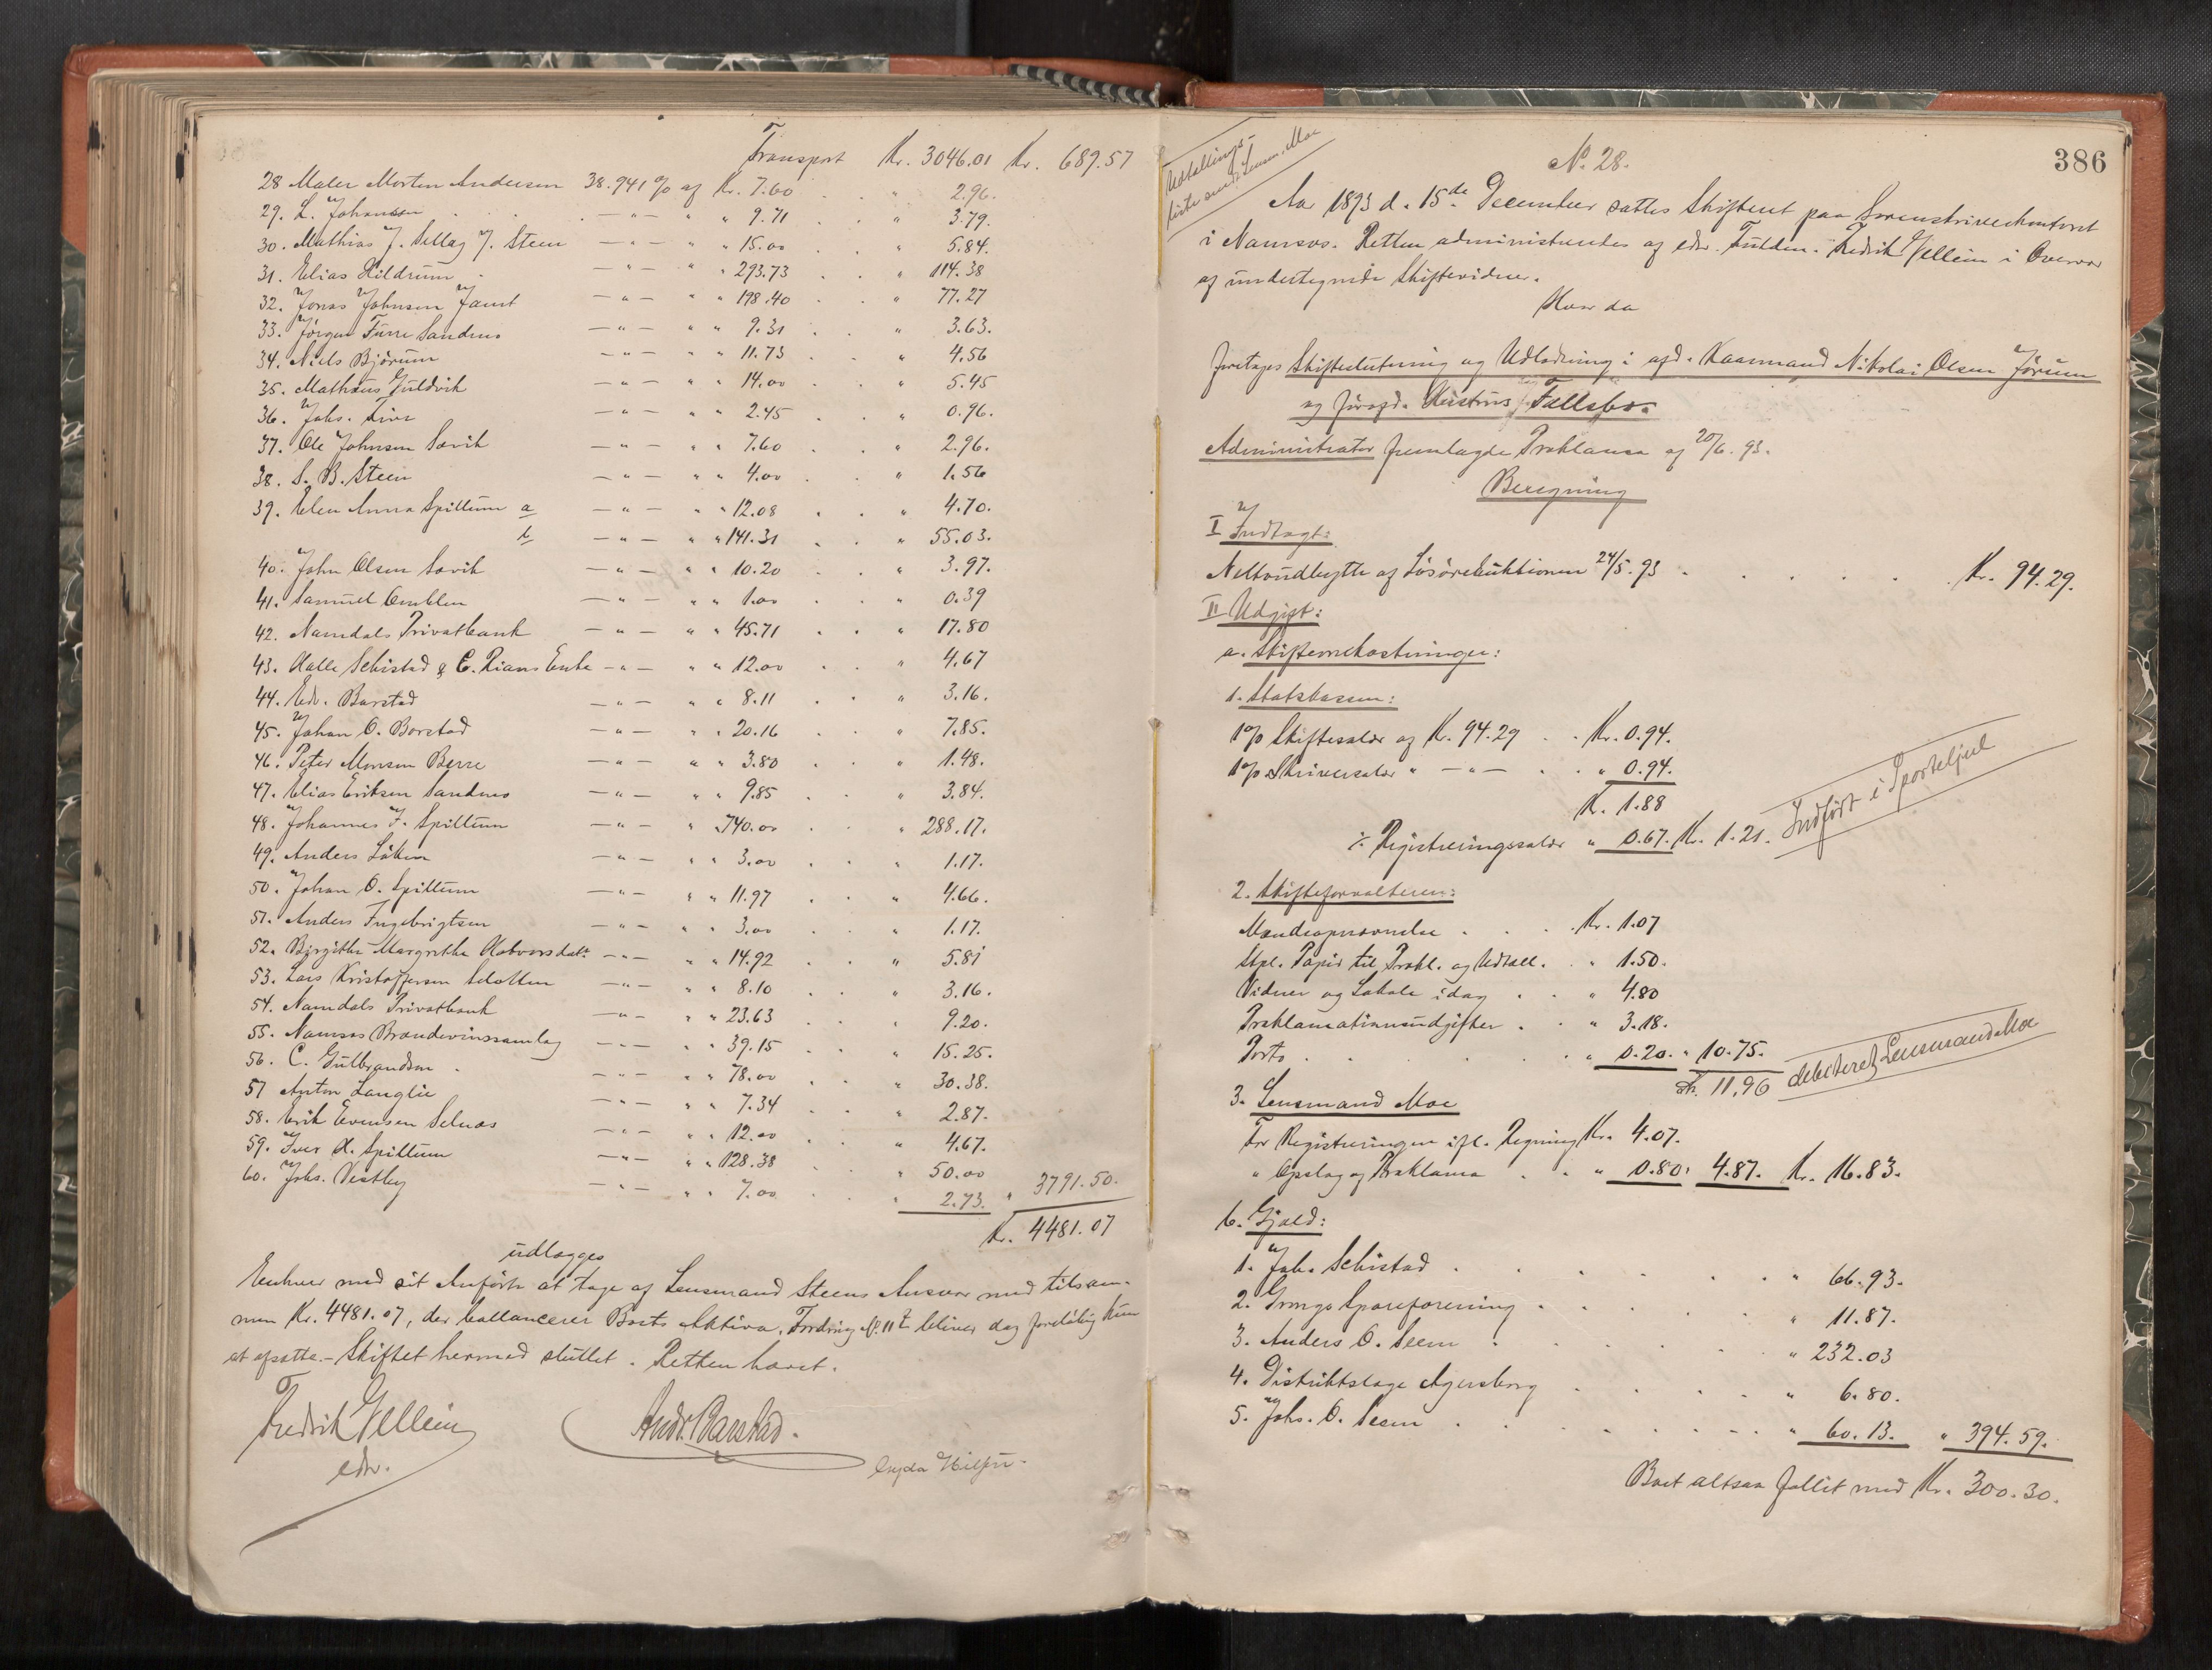 Transport Kr. 3046.01 Kr. 689.57
28 Maler Morten Andersen 38.941 % af Kr. 7.60 . . " 2.96.
29. L. Johansen . . . — " — " " 9.71 . . " 3.79.
30. Mathias J. Sellæg J. Steen — " — " " 15.00 . . " 5.84.
31. Elias Hildrum . — " — " " 293.73 . . " 114.38
32. Jonas Johnsen Jamt — " — " " 198.40 . . " 77.27
33. Jörgen Furre Sandnes — " — " " 9.31 . . " 3.63.
34. Niels Bjørum — " — " " 11.73 . . " 4.56
35. Mathæus Guldvik — " — " " 14.00 . . " 5.45
36. Johs. Lier — " — " " 2.45 . . " 0.96.
37. Ole Johnsen Søvik — " — " " 7.60 . . " 2.96.
38. S. B. Steen — " — " " 4.00 . . " 1.56
39. Elen Anna Spillum a — " — " " 12.08 . . " 4.70.
b — " — " " 141.31 . . " 55.03.
40. John Olsen Søvik — " — " " 10.20 . . " 3.97.
41. Samuel Emblen — " — " " 1.00 . . " 0.39
42. Namdals Privatbank — " — " " 45.71 . . " 17.80
43. Halle Schistad & C. Rians Enke — " — " " 12.00 . . " 4.67
44. Edv. Barstad — " — " " 8.11 . . " 3.16.
45. Johan O. Borstad — " — " " 20.16 . . " 7.85.
46. Peter Monsen Berre — " — " " 3.80 . . " 1.48.
47. Elias Eriksen Sandnes — " — " " 9.85 . . " 3.84.
48. Johannes J. Spillum — " — " " 740.00 . . " 288.17.
49. Anders Løkken — " — " " 3.00 . . " 1.17.
50. Johan O. Spillum — " — " " 11.97 . . " 4.66.
51. Anders Ingebrigtsen — " — " " 3.00 . . " 1.17.
52. Birgithe Margrethe Halvorsdatr — " — " " 14.92 . . " 5.81
53. Lars Kristoffersen — " — " " 8.10 . . " 3.16.
54. Namdals Privatbank — " — " " 23.63 . . " 9.20.
55. Namsos Brændevinssamlag — " — " " 39.15 . . " 15.25.
56. C. Gulbrandsen . — " — " " 78.00 . . " 30.38.
57 Anton Langlie — " — " " 7.34 . . " 2.87.
58. Erik Evensen Selnæs — " — " " 12.00 . . " 4.67.
59. Iver H. Spillum — " — " " 128.38 . . " 50.00
60. Johs. Vestby — " — " " 7.00 . . " 2.73. " 3791.50.
Kr. 4481.07
udlægges
Enhver med sit Anførte at tage af Lensmand Steens Ansvar med tilsam-
men Kr. 4481.07, der ballancerer Boets Aktiva. Fordring No. 11 bliver dog foreløbig kun
at afsætte. - Skiftet hermed sluttet. Retten hævet.
Fredrik Gellein
edv.
Andr. Barstad.
386
Udtællings-
liste sendt Lensm. Moe
No. 28.
Aar 1893 d. 15de December sattes Skifteret paa Sorenskriverkontoret
i Namsos. Retten administreredes af edv. Fuldm. Fredrik Gellein i Overvær
af undertegnede Skiftevidner.
Hvor da
foretoges Skifteslutning og Udlodning i afd. Kaarmand Nikolai Olsen Jørum
og føravd. Hustrus Fællesbo.
Administrator fremlagde Proklama af 20/6. 93.
Beregning
I Indtægt:
Nettoudbytte af Løsøreauktionen 24/5. 93 . . . . . Kr. 94.29.
II Udgift:
a. Skifteomkostninger:
1. Statskassen:
1 % Skiftesalær af Kr. 94.29 . . Kr. 0.94.
1 % Skriversalær " — " — . . " 0.94.
Kr. 1.88
÷ Registreringssalær " 0.67. Kr. 1.21. Indført i Sporteljnl
2. Skifteforvalteren:
Mændsopnævnelse . . . Kr. 1.07
Stpl. Papir til Prokl. og Udtæll. . " 1.50.
Vidner og Lokale idag . . " 4.80
Proklamationsudgifter . . " 3.18.
Porto . . . . " 0.20. " 10.75.
Kr. 11.96 debiteret Lensmand Moe
3. Lensmand Moe
For Registreringen ifl. Regning Kr. 4.07.
" Opslag af Proklama . . " 0.80. 4.87. Kr. 16.83.
b. Gjæld:
1. Joh. Schistad . . . . . . " 66.93.
2. Grongs Spareforening . . . . . " 11.87.
3. Anders O. Seem . . . . . " 232.03
4. Distriktslæge Agersborg . . . . " 6.80.
5. Johs. O. Seem . . . . . . " 60.13. " 394.59.
Boet altsaa fallit med Kr. 300.30.